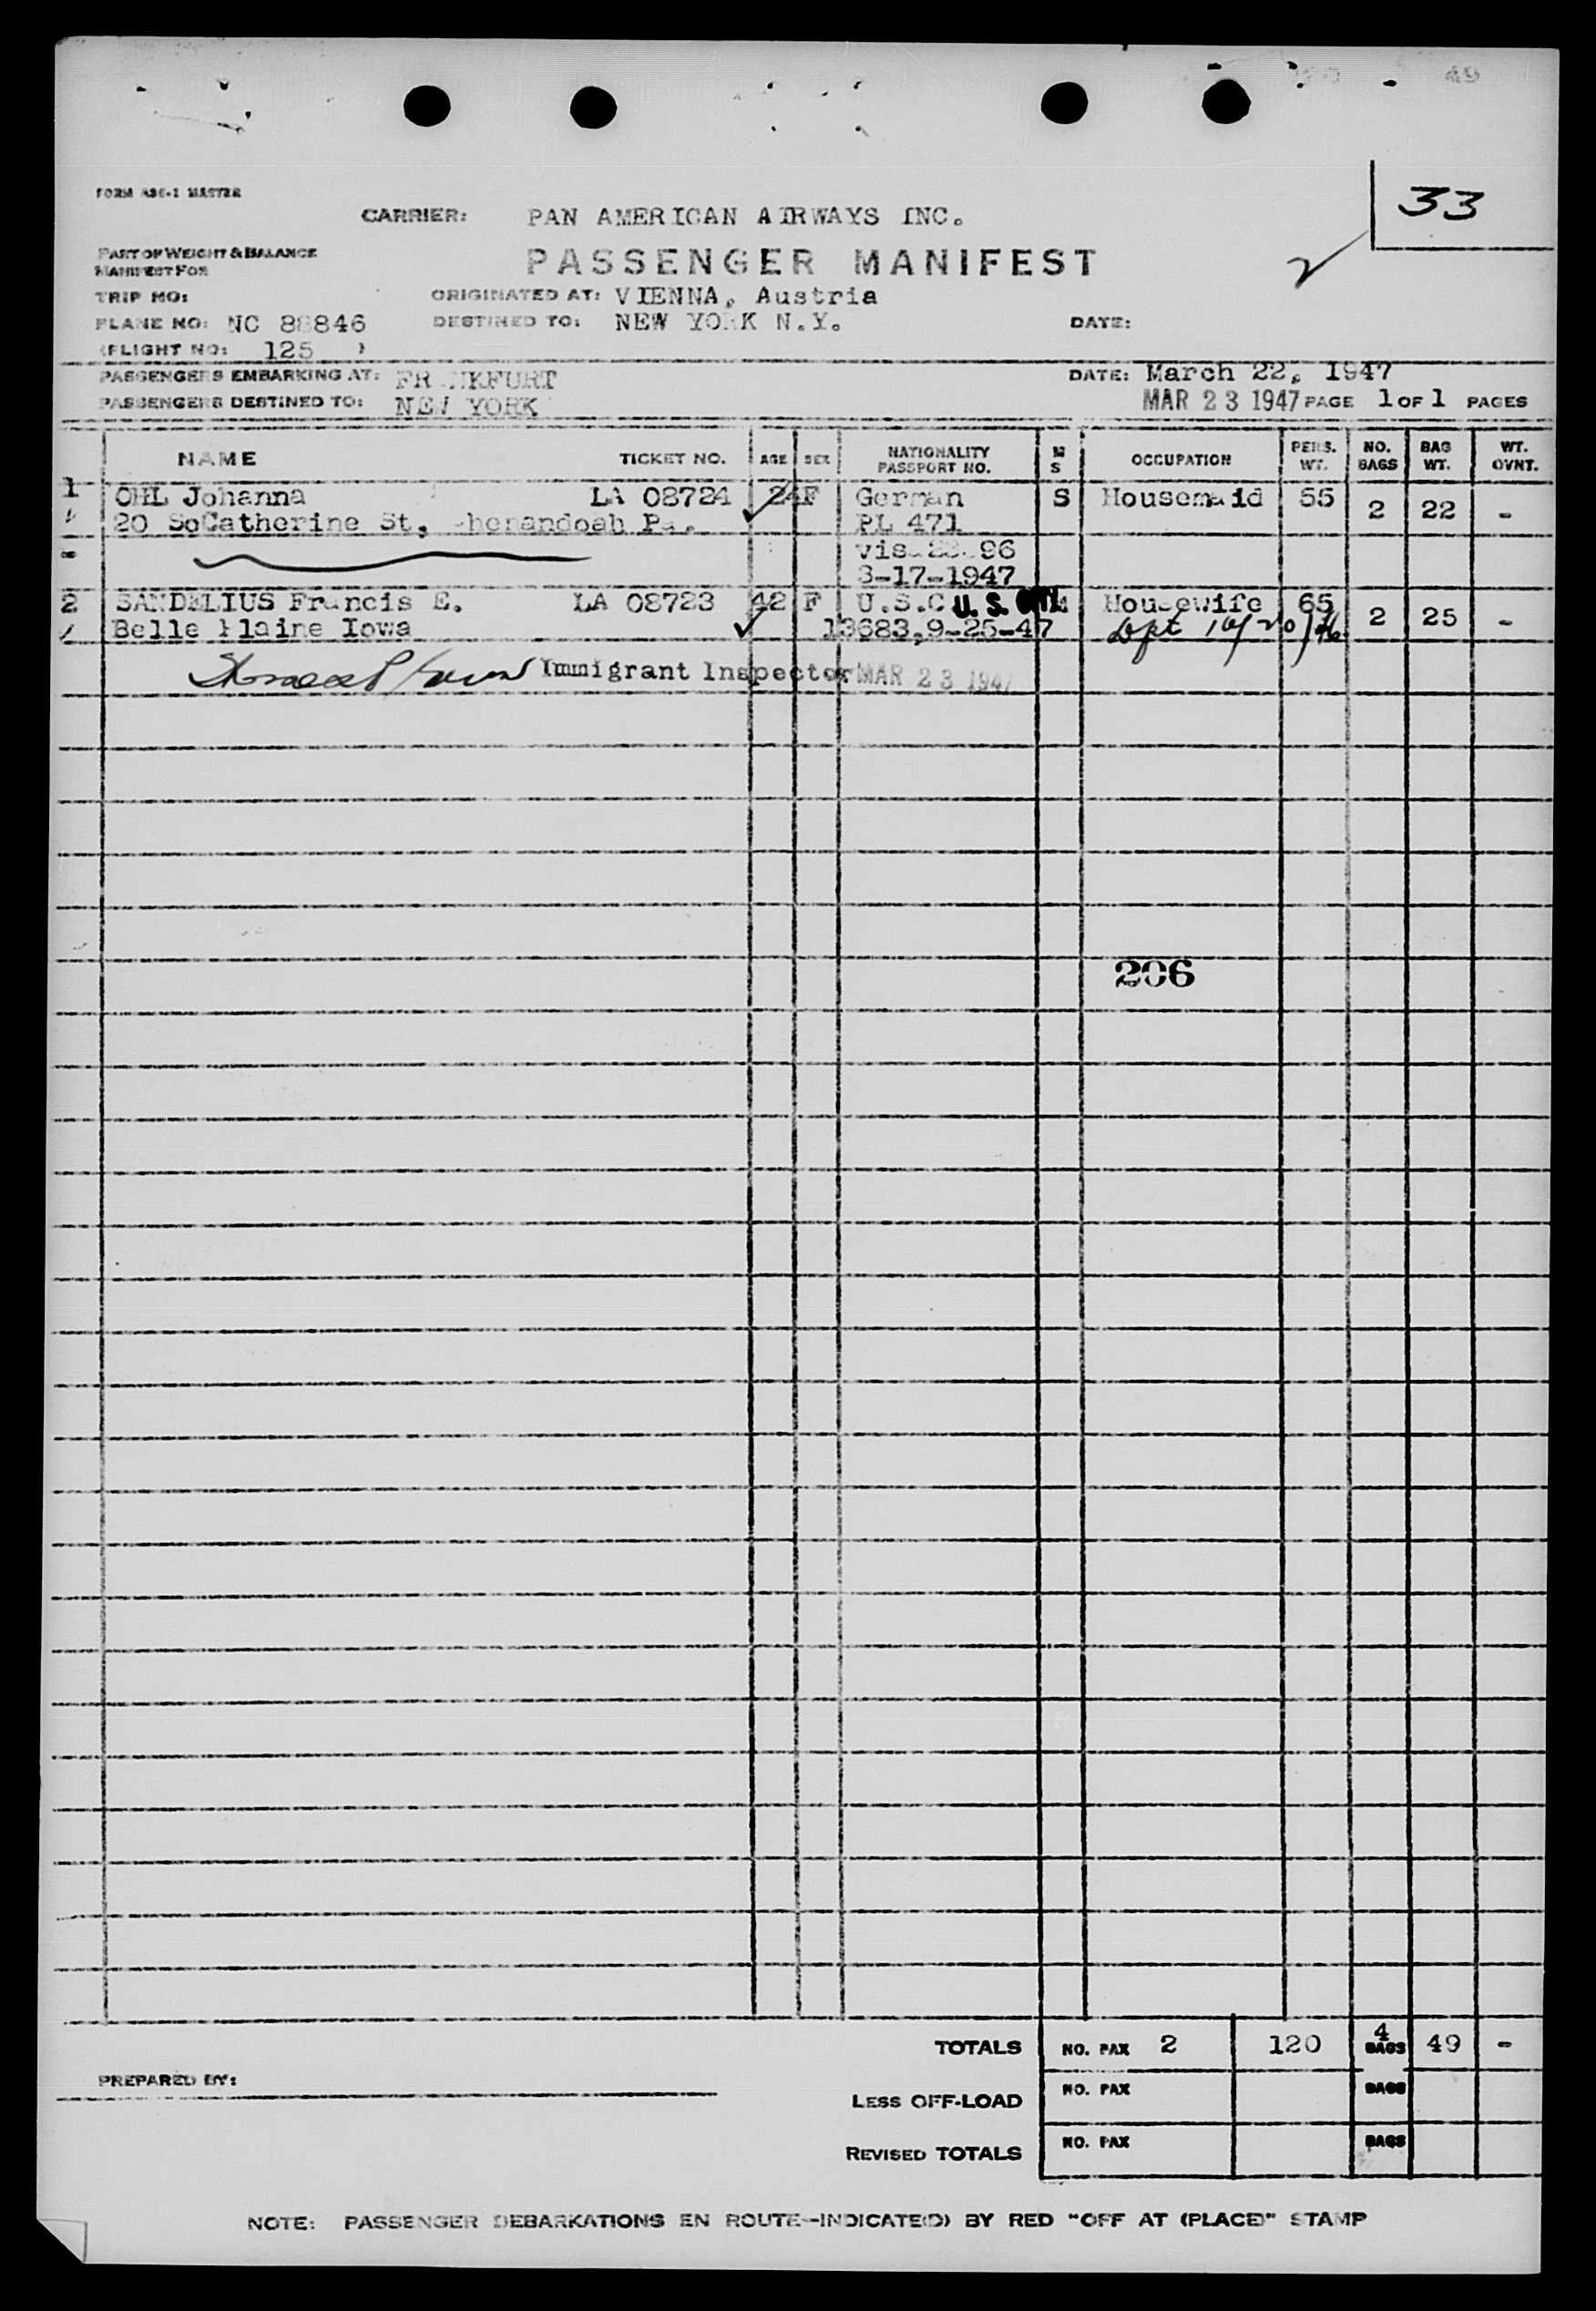 33
FORM A36-1 MASTER
CARRIER: PAN AMERICAN AIRWAYS INC.
PART OF WEIGHT & BALANCE
MANIFEST FOR
PASSENGER MANIFEST
TRIP NO:
ORIGINATED AT: VIENNA, Austria
PLANE NO: NC 88846
DESTINED TO: NEW YORK N.Y.
DATE:
(FLIGHT NO: 125 )
PASSENGERS EMBARKING AT: FRANKFURT
DATE: March 22, 1947
PASSENGERS DESTINED TO: NEW YORK
MAR 23 1947 PAGE 1 OF 1 PAGES
NAME TICKET NO. AGE SEX NATIONALITY PASSPORT NO. M S OCCUPATION PERS. WT. NO. BAGS BAG WT. WT. OVNT.
1 OHL Johanna LA 08724 24 F German S Housemaid 55 2 22 -
20 SoCatherine St, Shenandoah Pa. PL 471
visa 96
3-17-1947
2 SANDELIUS Francis E. LA 08723 42 F U.S.C U.S. Housewife 65 2 25 -
Belle Plaine Iowa 13683,9-25-47 Dpt 10/20/46
Immigrant Inspector MAR 23 1947
206
TOTALS NO. PAX 2 120 4 BAGS 49 -
PREPARED BY:
LESS OFF-LOAD NO. PAX BAGS
REVISED TOTALS NO. PAX BAGS
NOTE: PASSENGER DEBARKATIONS EN ROUTE—INDICATE(D) BY RED "OFF AT (PLACE)" STAMP